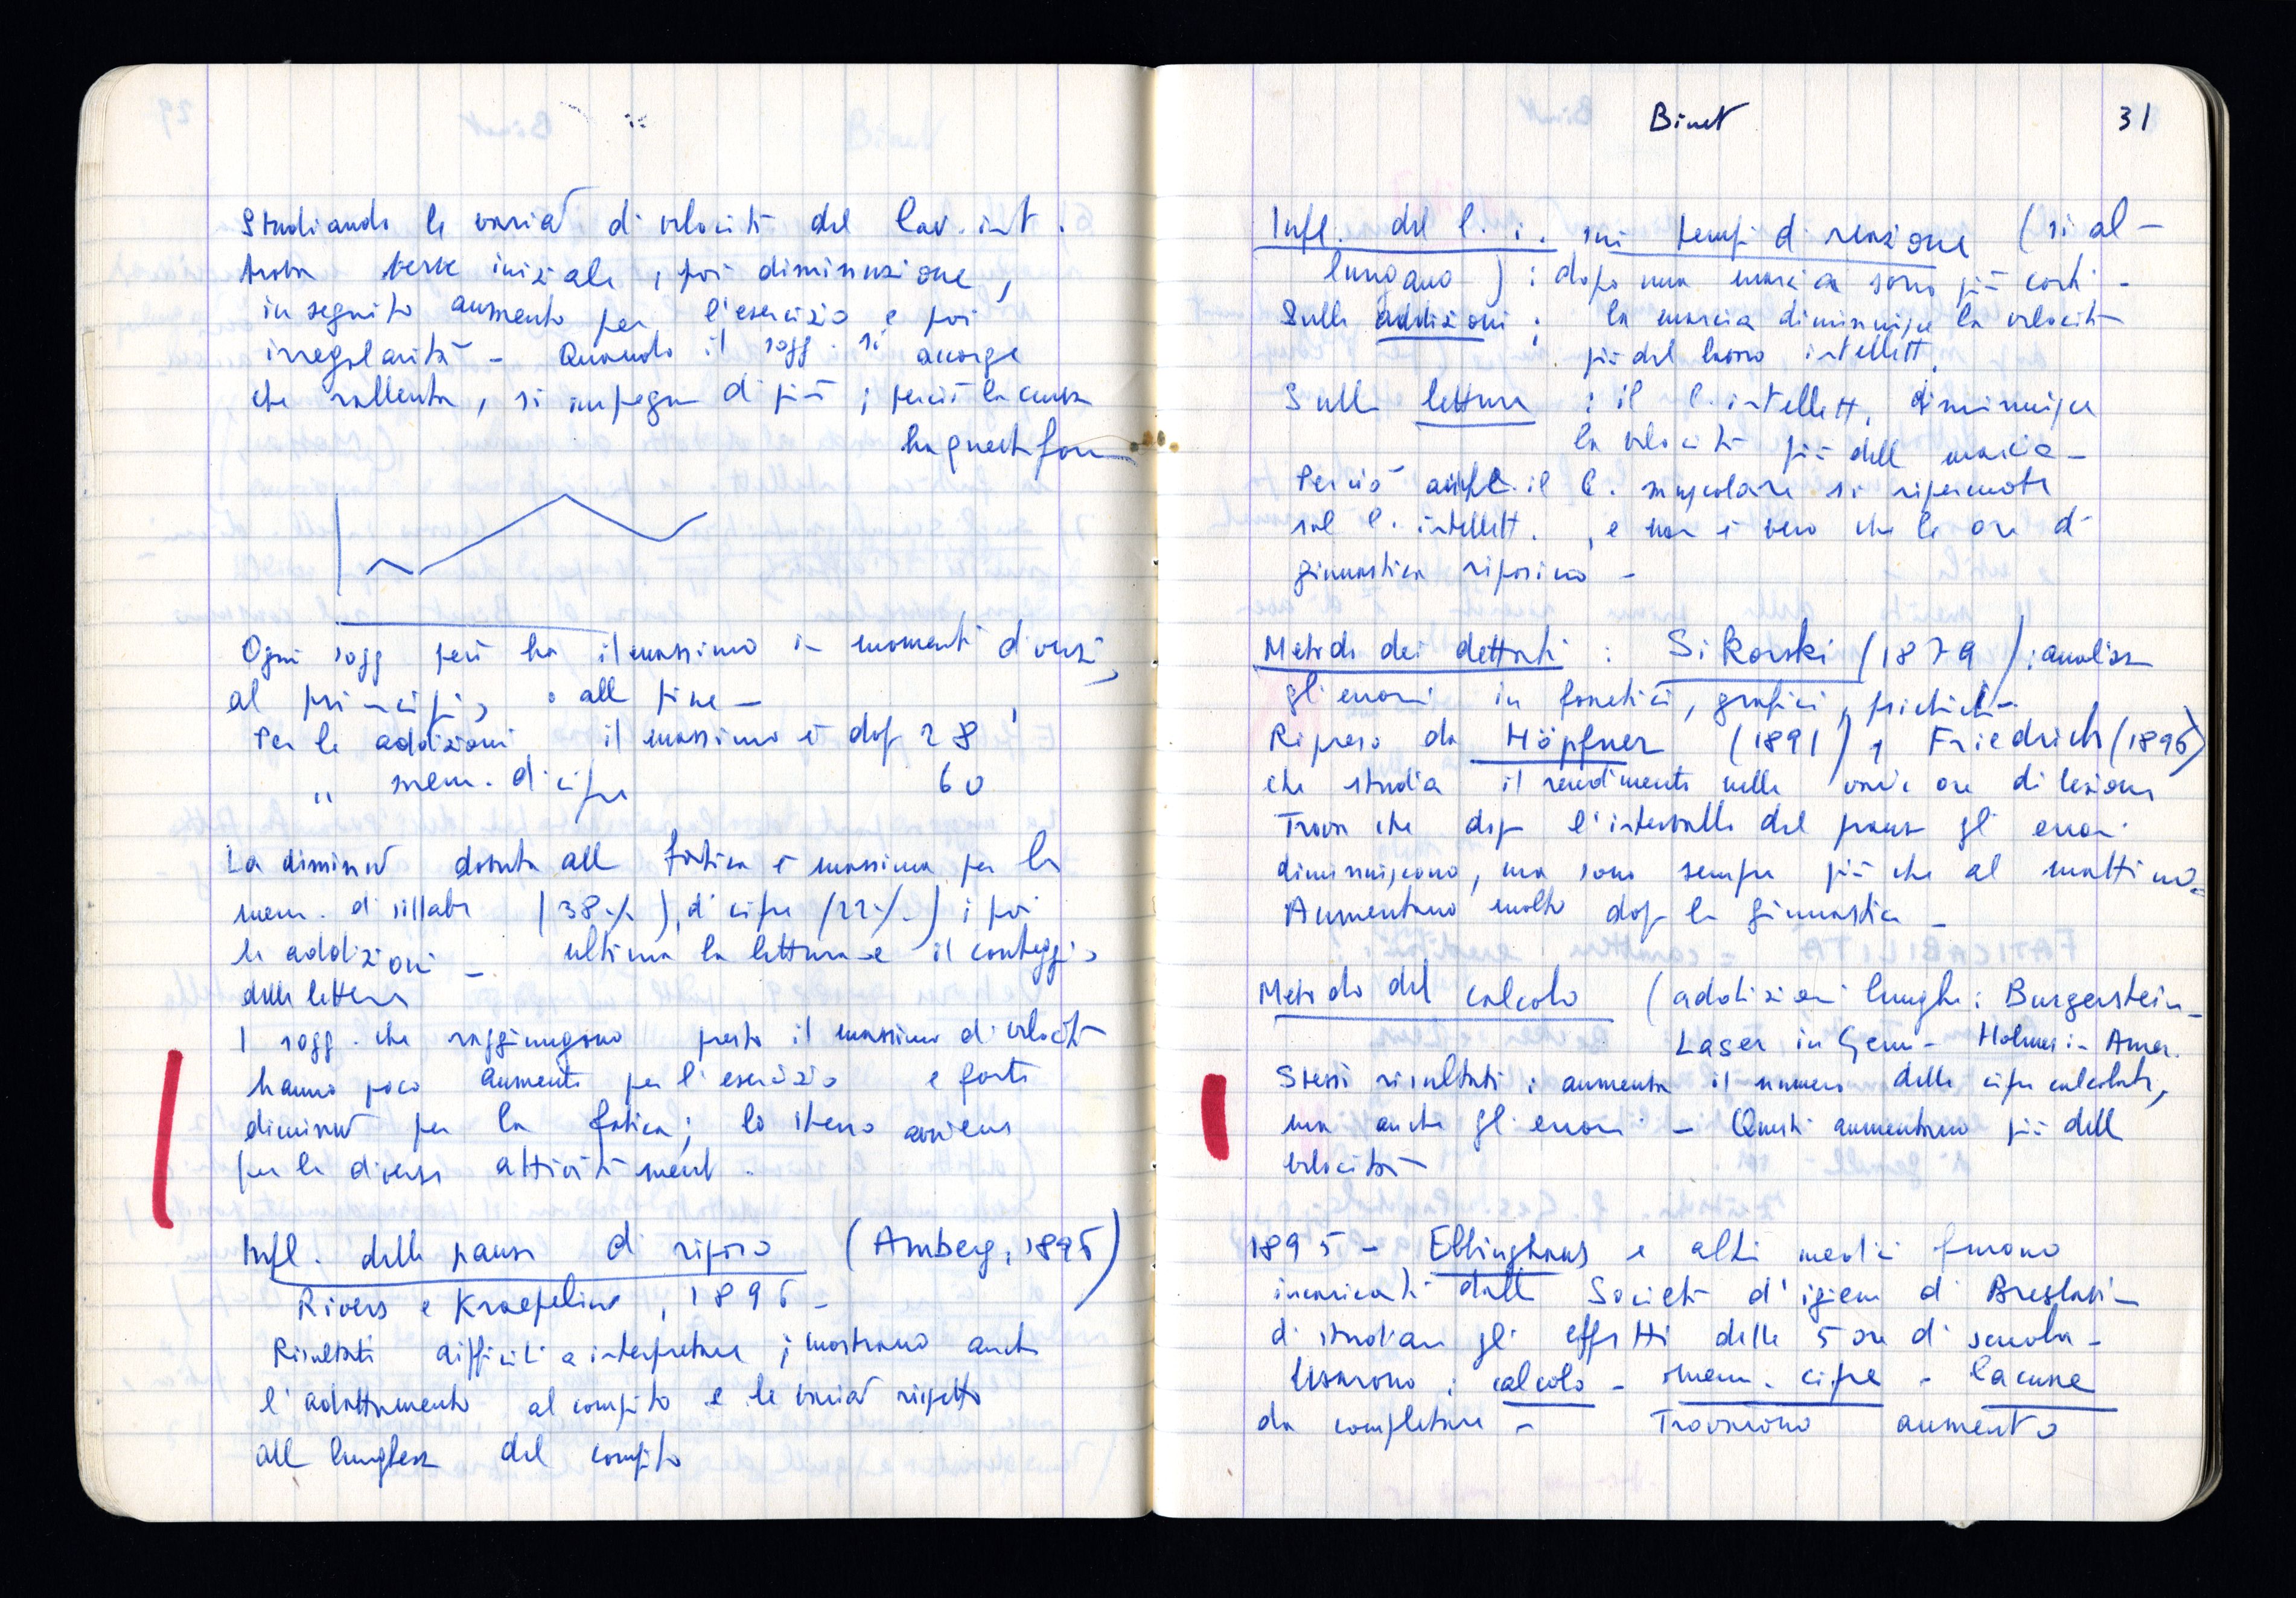 Studiando le variaz di velocità del lav. int.
trova verve iniziale, poi diminuzione,
in seguito aumento per l'esercizio e poi
irregolarità - Quando il sogg. si accorge
che rallenta, si impegna di più; perciò la curva
ha questa forma
Ogni sogg però ha il massimo in momenti diversi,
al principio, o alla fine -
Per le addizioni, il massimo è dopo 28'
" mem. di cifre 60
La diminuz dovuta alla fatica è massima per la
mem. di sillabe (38%), di cifre (22%); poi
le addizioni - ultima la lettura e il conteggio
delle lettere
I sogg. che raggiungono presto il massimo di velocità
hanno poco aumento per l'esercizio e forte
diminuz per la fatica; lo stesso avviene
per le diverse attività ment.
Infl. delle pause di riposo (Amberg, 1896)
Rivers e Kraepelin, 1896 -
Risultati difficili a interpretare; mostrano anche
l'adattamento al compito e le variaz rispetto
alla lunghezza del compito
Binet 31
Infl. del l. i. sui tempi di reazione (si al-
lungano): dopo una marcia sono più corti -
Sulle addizioni: la marcia diminuisce la velocità
più del lavoro intellett.
Sulla lettura: il l. intellett. diminuisce
la velocità più della marcia -
Perciò anche il l. muscolare si ripercuote
sul l. intellett., e non è vero che le ore di
ginnastica riposino -
Metodo dei dettati: Sikorski (1879): analizza
gli errori in fonetici, grafici, psichici -
Ripreso da Höpfner (1891), Friedrich (1896)
che studia il rendimento nelle varie ore di lezione
Trova che dopo l'intervallo del pranzo gli errori
diminuiscono, ma sono sempre più che al mattino -
Aumentano molto dopo la ginnastica -
Metodo del calcolo (addizioni lunghe: Burgerstein -
Laser in Germ - Holmes in Amer.
Stessi risultati: aumenta il numero delle cifre calcolate,
ma anche gli errori - Questi aumentano più della
velocità -
1895 - Ebbinghaus e altri medici furono
incaricati dalla Società d'igiene di Breslavia
di studiare gli effetti delle 5 ore di scuola -
Usarono: calcolo - mem. cifre - lacune
da completare - Trovarono aumento